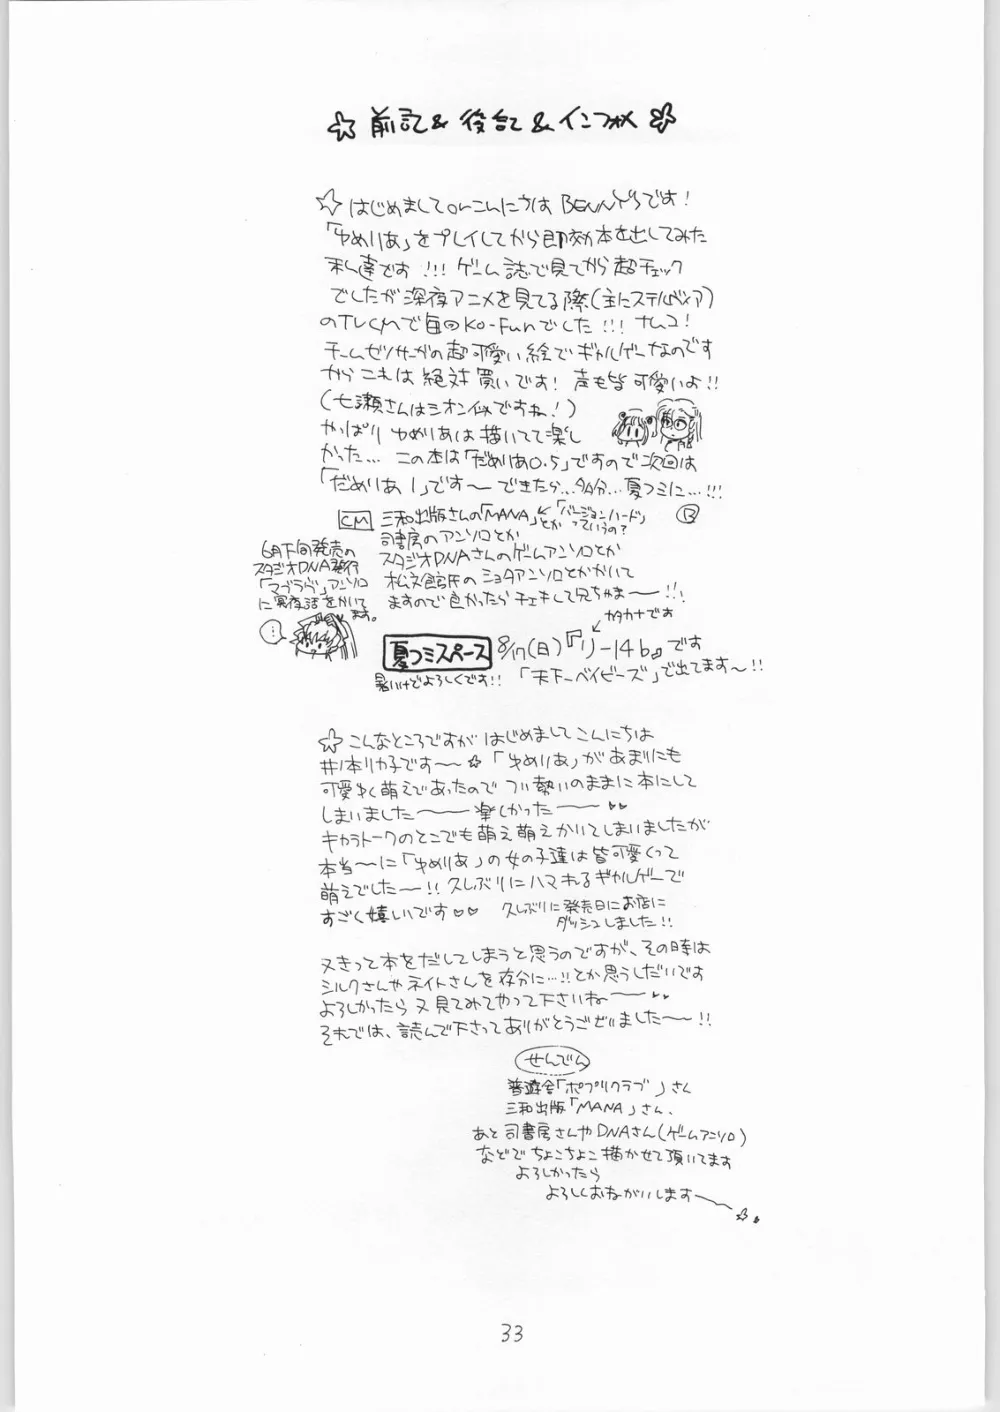 ☆ 前記 & 後記 & インフォメ ☆
☆ はじめまして or こんにちは BENNY'Sです!
「ゆめりあ」をプレイしてから即効本を出してみた
私達です!!! ゲーム誌で見てから超チェック
でしたが深夜アニメを見てる際(主にステルヴィア)
のTVCMで毎回Ko-Funでした!!! ナムコ!
チームゼノサーガの超可愛い絵でギャルゲーなのです
からこれは絶対買いです! 声も皆可愛いよ!!
(七瀬さんはシオン似ですね!)
やっぱりゆめりあは描いてて楽し
かった… この本は「だめりあ0.5」ですので次回は
「だめりあ1」です〜 できたら…多分…夏コミに…!!!
CM 三和出版さんの「MANA」とか ←「バージョンハード」っていうの? B
司書房のアンソロとか
スタジオDNAさんのゲームアンソロとか
松文館氏のショタアンソロとかかいて
ますので良かったらチェキして兄ちゃま〜!!!
6月下旬発売の
スタジオDNA発行
「マブラヴ」アンソロ
に冥夜話をかいて
ます。
…
カタカナです
夏コミスペース 8/17(日)『リ-14b』です
暑いけどよろしくです!! 「天下一ベイビーズ」で出てます〜!!
☆ こんなところですがはじめましてこんにちは
井ノ本リカ子です〜☆「ゆめりあ」があまりにも
可愛ゆく萌えであったのでつい勢いのままに本にして
しまいました〜 楽しかった〜♥♥
キャラトークのとこでも萌え萌えかいてしまいましたが
本当〜に「ゆめりあ」の女の子達は皆可愛くって
萌えでした〜!! 久しぶりにハマれるギャルゲーで
すごく嬉しいです♥♥ 久しぶりに発売日にお店に
ダッシュしました!!
又きって本をだしてしまうと思うのですが、その時は
シルクさんやネイトさんを存分に…!!とか思うしだいです
よろしかったら又見てみてやって下さいね〜♥♥
それでは、読んで下さってありがとうございました〜!!
せんでん
普遊舎「ポプリクラブ」さん
三和出版「MANA」さん、
あと司書房さんやDNAさん(ゲームアンソロ)
などでちょこちょこ描かせて頂いてます
よろしかったら
よろしくおねがいします〜☆
33